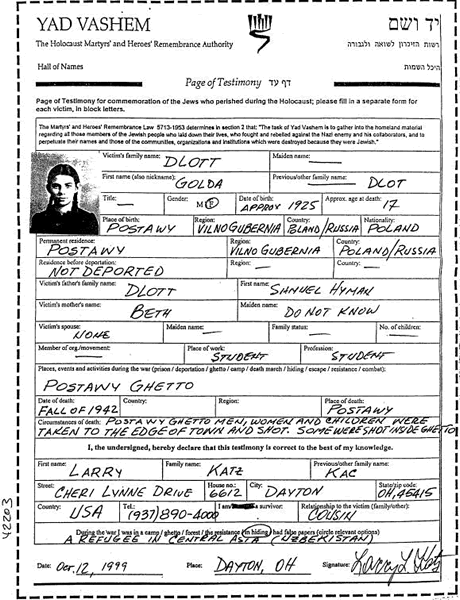 YAD VASHEM יד ושם
The Holocaust Martyrs' and Heroes' Remembrance Authority רשות הזיכרון לשואה ולגבורה
Hall of Names היכל השמות
Page of Testimony דף עד
Page of Testimony for commemoration of the Jews who perished during the Holocaust; please fill in a separate form for
each victim, in block letters.
The Martyrs' and Heroes' Remembrance Law 5713-1953 determines in section 2 that: "The task of Yad Vashem is to gather into the homeland material
regarding all those members of the Jewish people who laid down their lives, who fought and rebelled against the Nazi enemy and his collaborators, and to
perpetuate their names and those of the communities, organizations and institutions which were destroyed because they were Jewish."
Victim's family name: DLOTT Maiden name: —
First name (also nickname): GOLDA Previous/other family name: DLOT
Title: — Gender: M F Date of birth: APPROX 1925 Approx. age at death: 17
Place of birth: POSTAWY Region: VILNO GUBERNIA Country: POLAND/RUSSIA Nationality: POLAND
Permanent residence: POSTAWY Region: VILNO GUBERNIA Country: POLAND/RUSSIA
Residence before deportation: NOT DEPORTED Region: — Country: —
Victim's father's family name: DLOTT First name: SHMUEL HYMAN
Victim's mother's name: BETH Maiden name: DO NOT KNOW
Victim's spouse: NONE Maiden name: — Family status: — No. of children: —
Member of org./movement: — Place of work: STUDENT Profession: STUDENT
Places, events and activities during the war (prison / deportation / ghetto / camp / death march / hiding / escape / resistance / combat):
POSTAWY GHETTO
Date of death: FALL OF 1942 Country: Region: Place of death: POSTAWY
Circumstances of death: POSTAWY GHETTO MEN, WOMEN AND CHILDREN WERE
TAKEN TO THE EDGE OF TOWN AND SHOT. SOME WERE SHOT INSIDE GHETTO
I, the undersigned, hereby declare that this testimony is correct to the best of my knowledge.
First name: LARRY Family name: KATZ Previous/other family name: KAC
Street: CHERI LYNNE DRIVE House no.: 6612 City: DAYTON State/zip code: OH, 45415
Country: USA Tel.: (937) 890-4000 I am survivor: Relationship to the victim (family/other): COUSIN
During the war I was in a camp / ghetto / forest / the resistance / in hiding / had false papers (circle relevant options)
A REFUGEE IN CENTRAL ASIA (UZBEKISTAN)
Date: Oct. 12, 1999 Place: DAYTON, OH Signature: Larry L Katz
42203